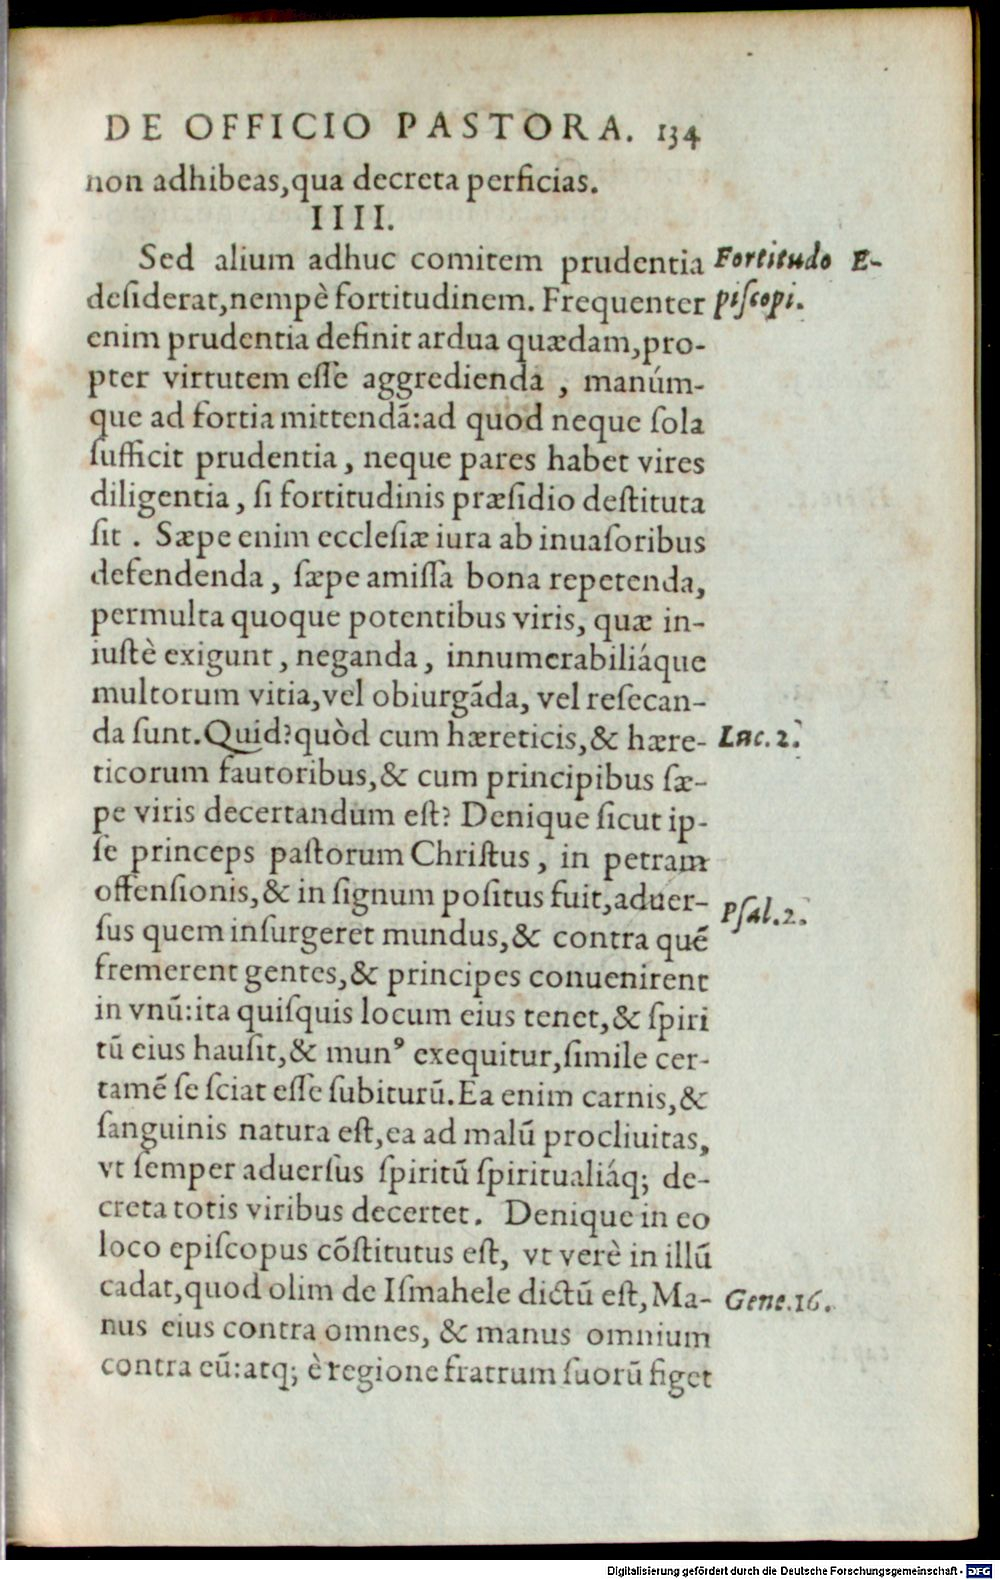 DE OFFICIO PASTORA. 134
non adhibeas,qua decreta perficias.
IIII.
Sed alium adhuc comitem prudentia
Fortitudo E-
desiderat,nempè fortitudinem. Frequenter
piſcopi.
enim prudentia definit ardua quædam,pro-
pter virtutem eſſe aggredienda , manúm-
que ad fortia mittendã:ad quod neque ſola
ſufficit prudentia, neque pares habet vires
diligentia, ſi fortitudinis præſidio deſtituta
ſit . Sæpe enim eccleſiæ iura ab inuaſoribus
defendenda, ſæpe amiſſa bona repetenda,
permulta quoque potentibus viris, quæ in-
iuſtè exigunt, neganda, innumerabiliáque
multorum vitia,vel obiurgãda, vel reſecan-
da ſunt.Quid?quòd cum hæreticis,& hære-
Luc.2.
ticorum fautoribus,& cum principibus ſæ-
pe viris decertandum eſt? Denique ſicut ip-
ſe princeps paſtorum Chriſtus, in petram
offenſionis,& in ſignum poſitus fuit,aduer-
Pſal.2.
ſus quem inſurgeret mundus,& contra quẽ
fremerent gentes,& principes conuenirent
in vnũ:ita quiſquis locum eius tenet,& ſpiri
tũ eius hauſit,& munꝰ exequitur,ſimile cer-
tamẽ ſe ſciat eſſe ſubiturũ.Ea enim carnis,&
ſanguinis natura eſt,ea ad malũ procliuitas,
vt ſemper aduerſus ſpiritũ ſpiritualiáq; de-
creta totis viribus decertet. Denique in eo
loco epiſcopus cõſtitutus eſt, vt verè in illũ
cadat,quod olim de Iſmahele dictũ eſt, Ma-
Gene.16.
nus eius contra omnes, & manus omnium
contra eũ:atq; è regione fratrum ſuorũ figet
Digitalisierung gefördert durch die Deutsche Forschungsgemeinschaft - DFG